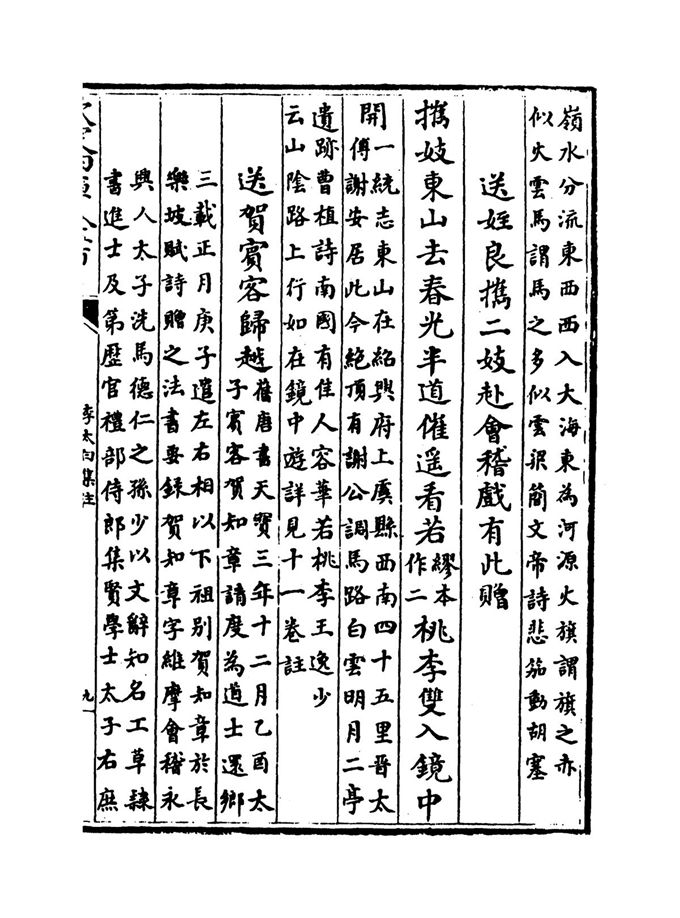 嶺水分流東西西入大海東為河源火旗謂旗之赤
似火雲馬謂馬之多似雲梁簡文帝詩悲笳動胡塞
送姪良擕二妓赴會稽戲有此贈
擕妓東山去春光半道催遥看若
繆本
作二
桃李雙入鏡中
開
一統志東山在紹興府上虞縣西南四十五里晋太
傅謝安居此今絶頂有謝公調馬路白雲明月二亭
遺跡曹植詩南國有佳人容華若桃李王逸少
云山陰路上行如在鏡中遊詳見十一卷註
送賀賓客歸越
舊唐書天寳三年十二月乙酉太
子賓客賀知章請度為道士還鄉
三載正月庚子遣左右相以下祖别賀知章於長
樂坡賦詩贈之法書要録賀知章字維摩會稽永
興人太子洗馬德仁之孫少以文辭知名工草隸
書進士及第歴官禮部侍郎集賢學士太子右庶
李太白集注
九